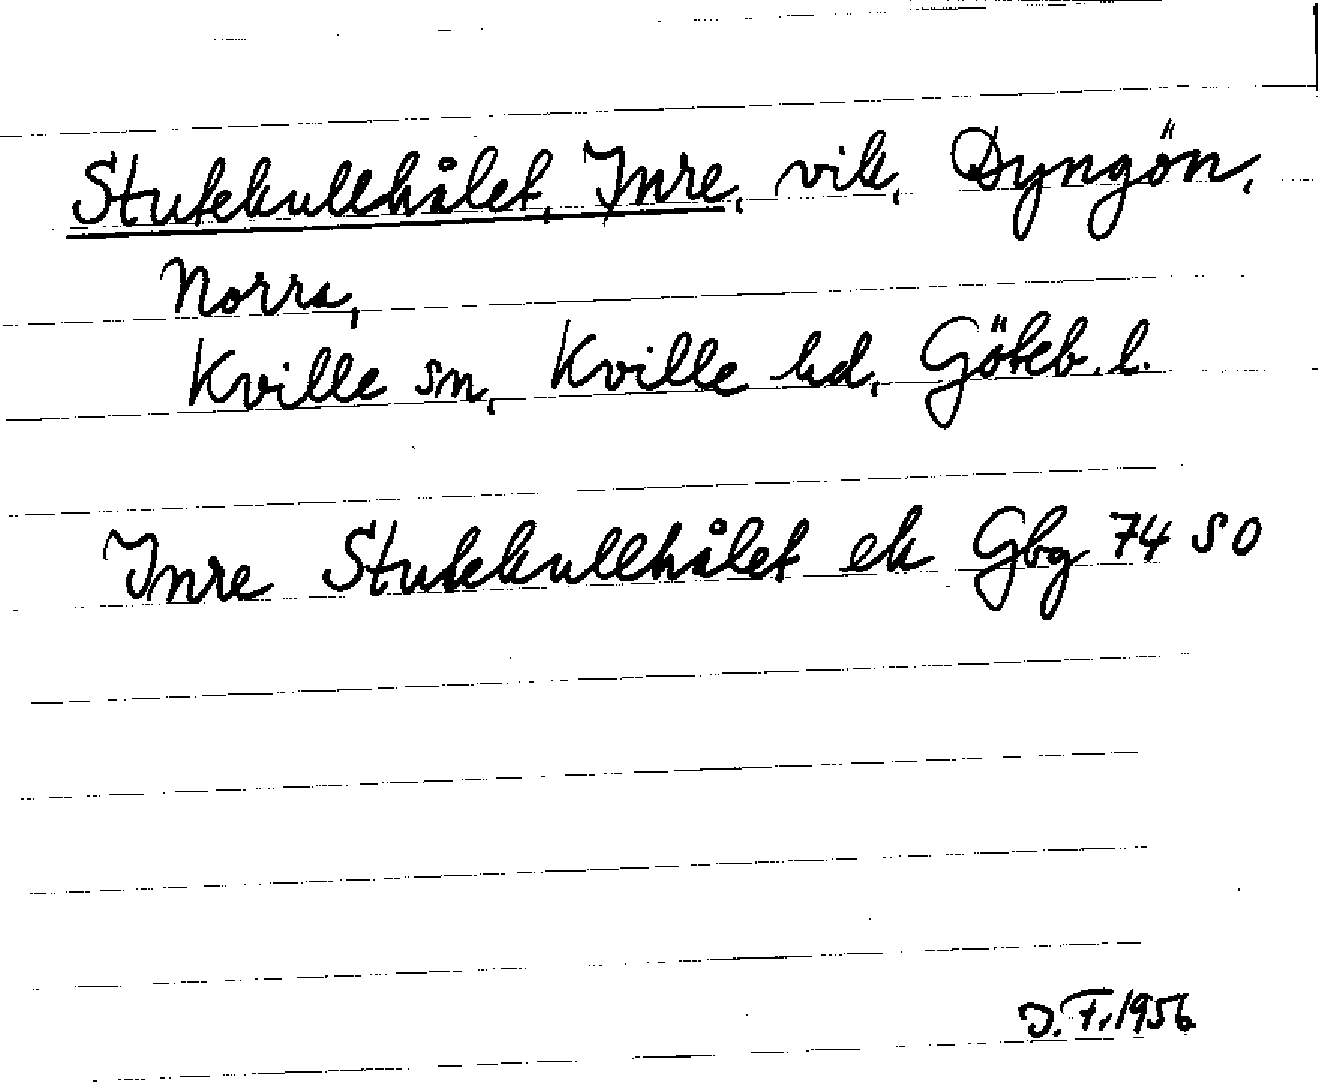 Stutekullhålet, Inre, vik, Dyngön,
Norra,
Kville sn, Kville hd, Göteb. l.
Inre Stutekullhålet ek Gbg 74 SO
J. F. 1956